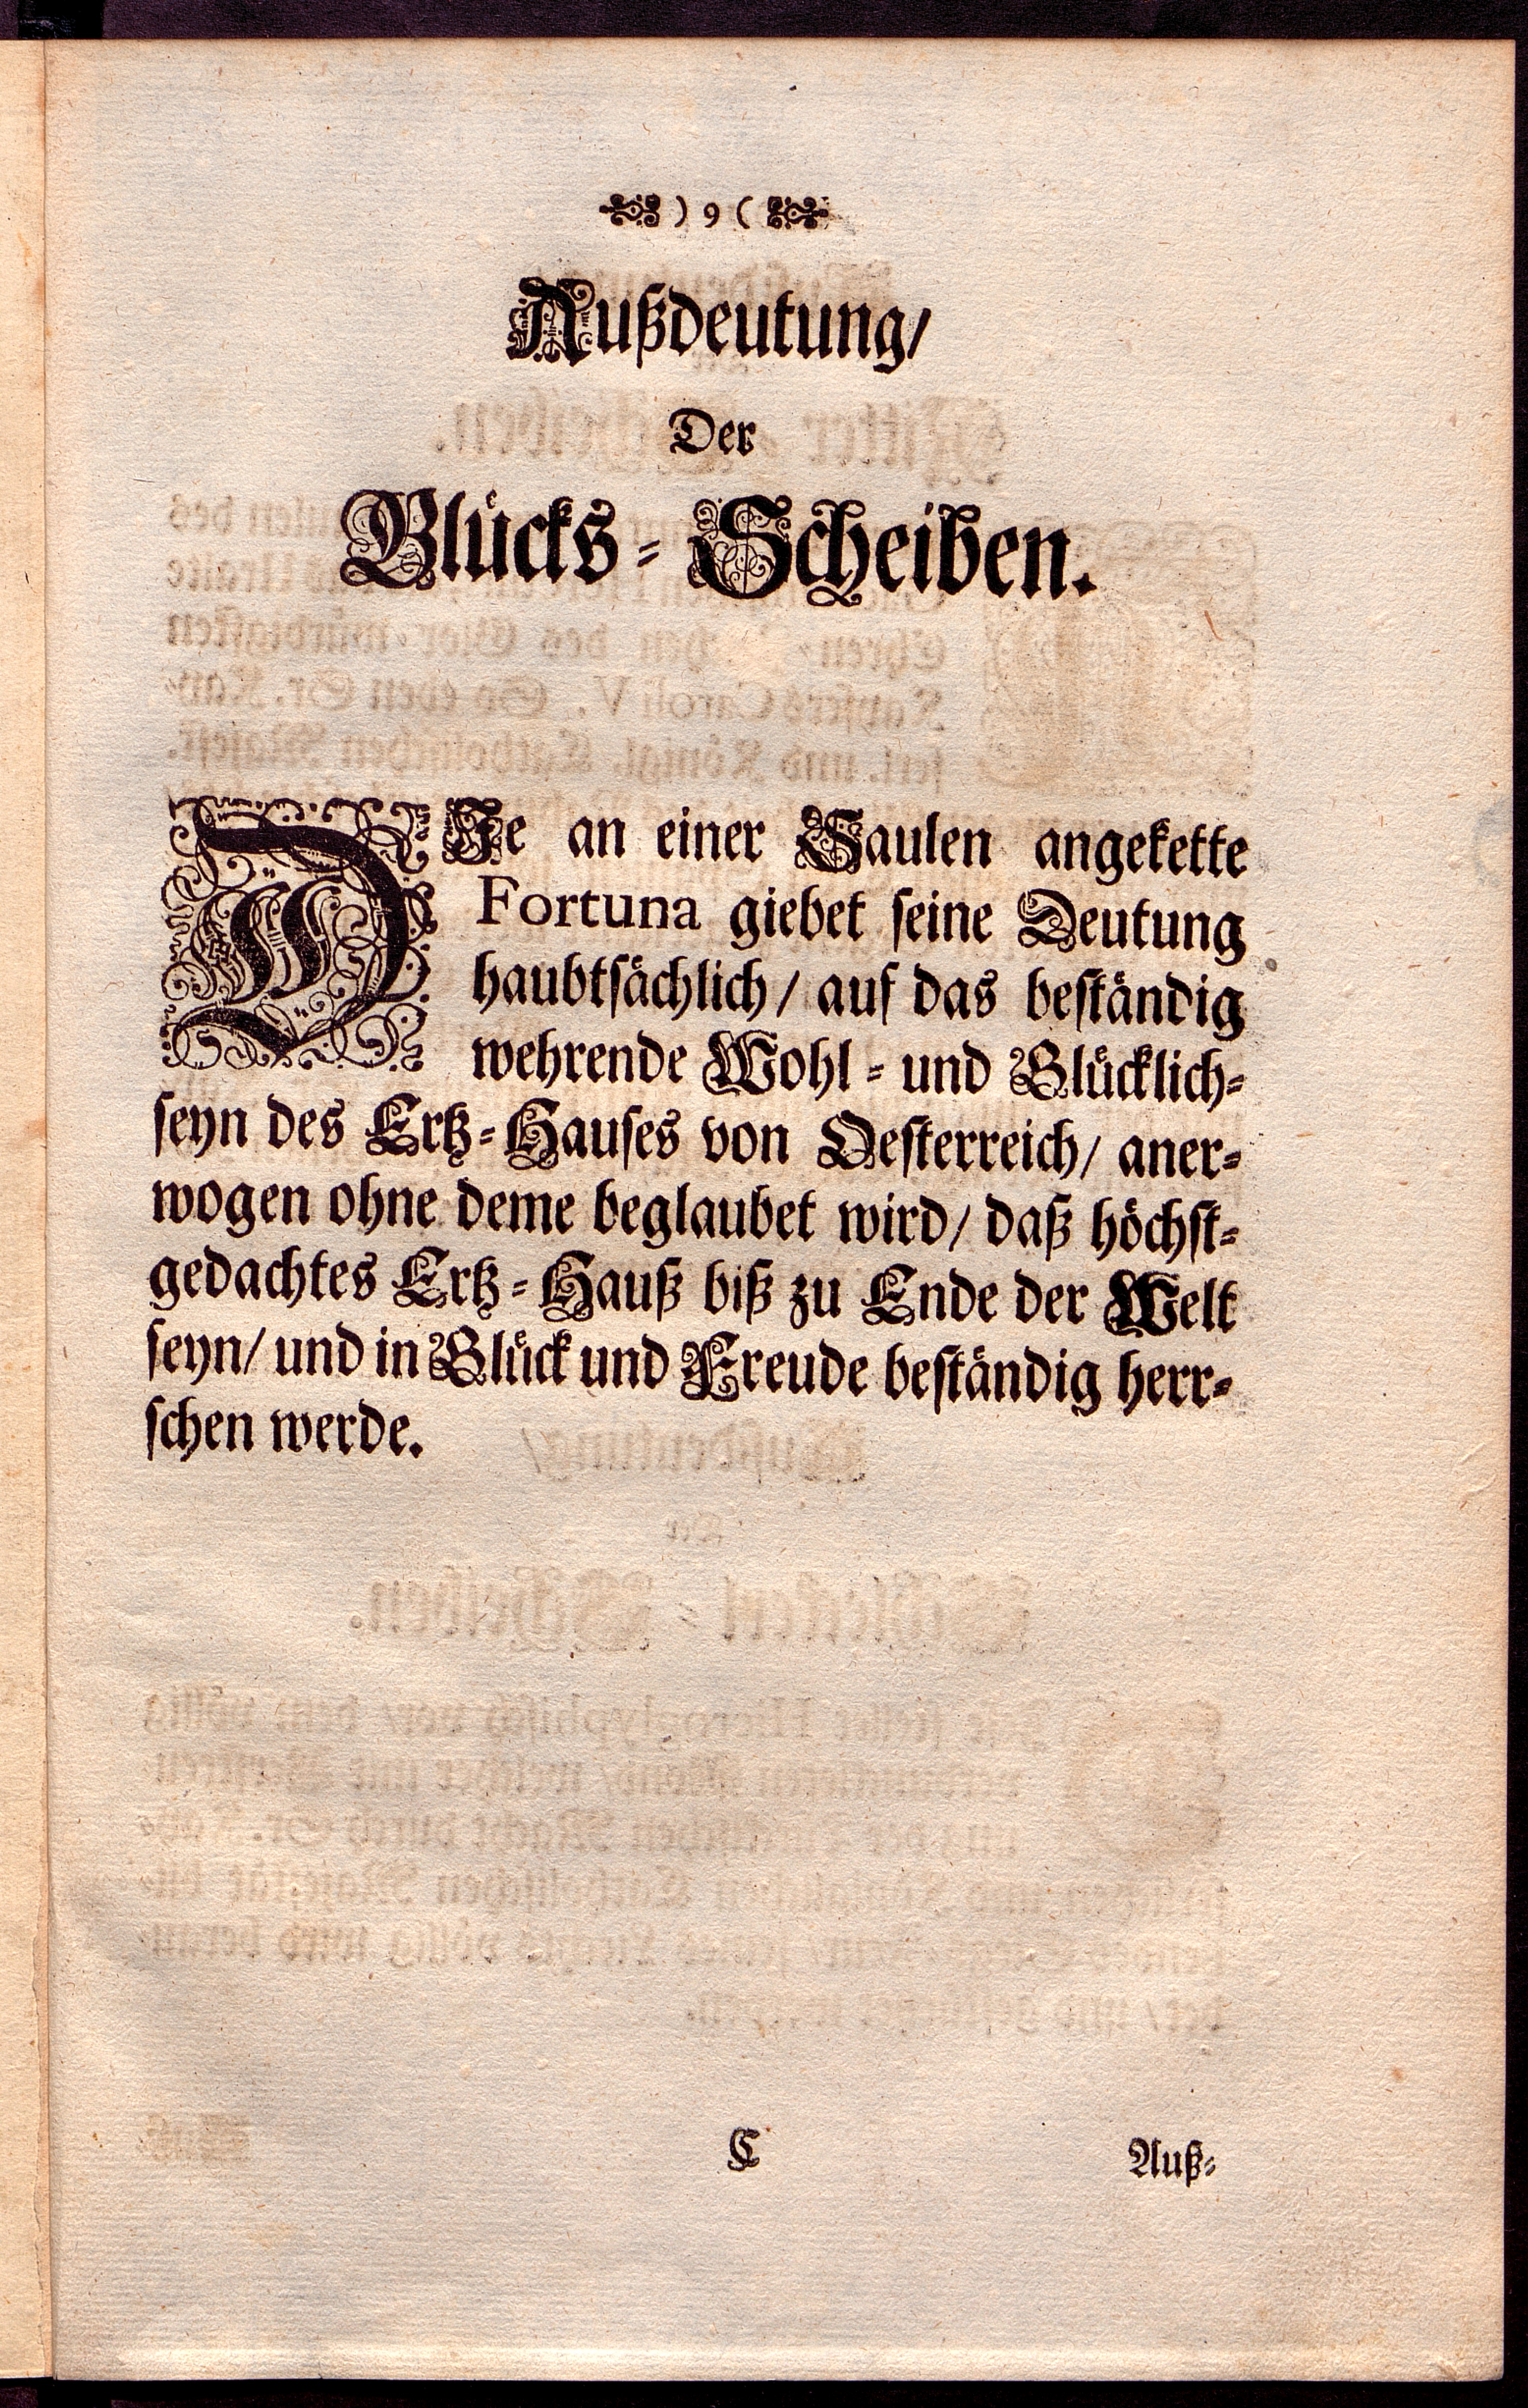 ) 9 (
Außdeutung/
Der
Glücks-Scheiben.
DIe an einer Saulen angekette
Fortuna giebet seine Deutung
haubtsächlich/ auf das beständig
wehrende Wohl- und Glücklich-
seyn des Ertz-Hauses von Oesterreich/ aner-
wogen ohne deme beglaubet wird/ daß höchst-
gedachtes Ertz-Hauß biß zu Ende der Welt
seyn/ und in Glück und Freude beständig herr-
schen werde.
C
Auß-